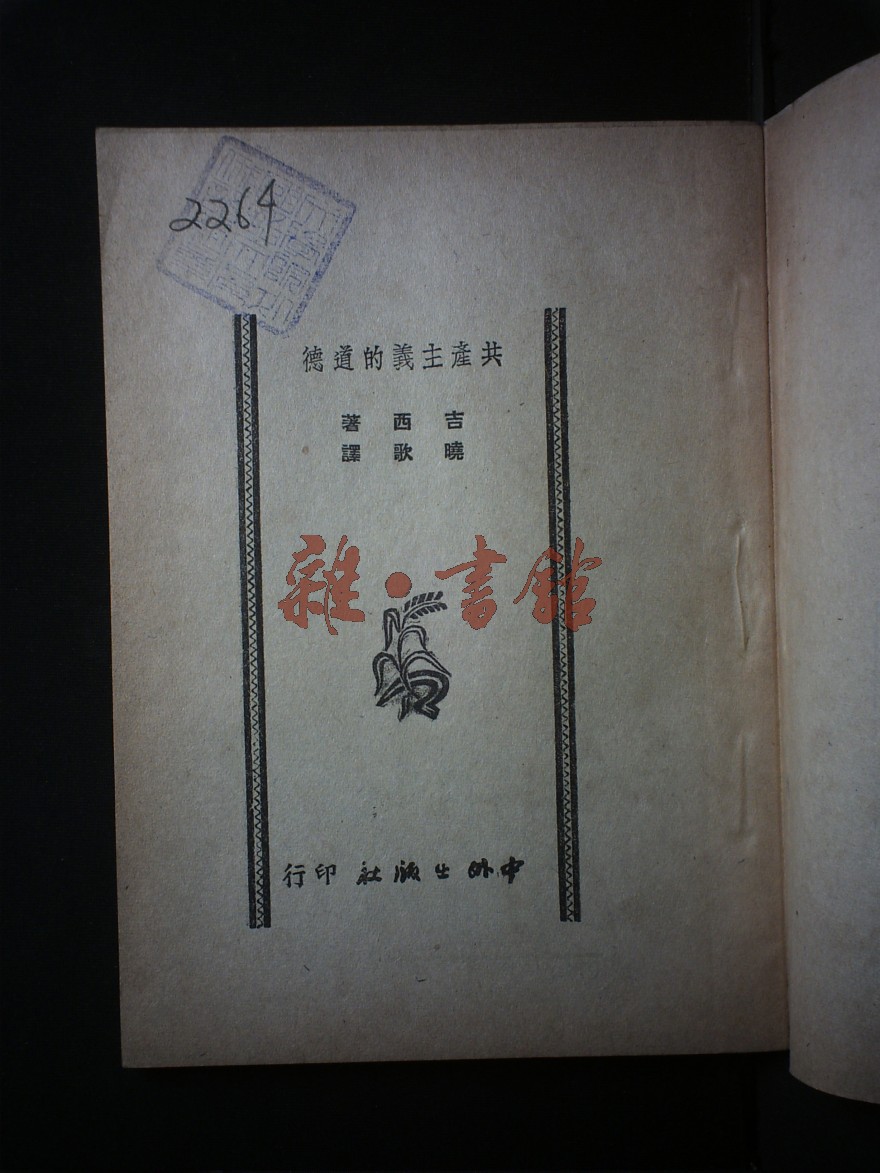 2264
共產主義的道德
吉西著
曉歌譯
雜·書館
中外出版社印行